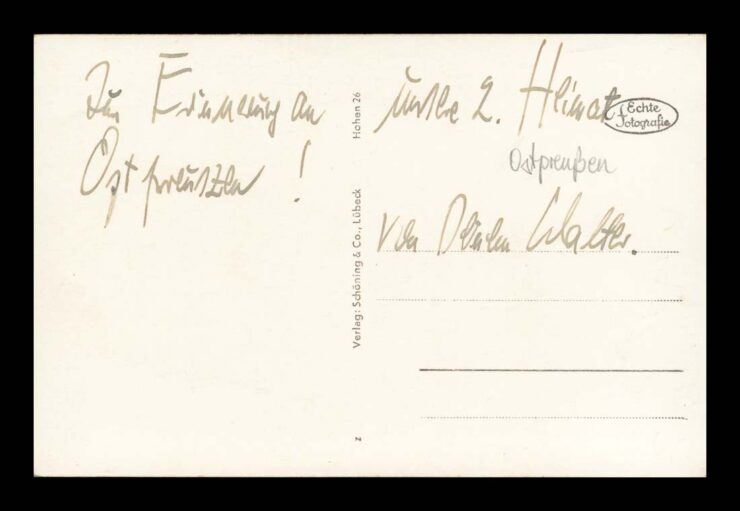 Zur Erinnerung an
Ostpreußen !
Verlag: Schöning & Co., Lübeck
Hohen 26
z
unsere 2. Heimat
Echte
Fotografie
Ostpreußen
von Walter.